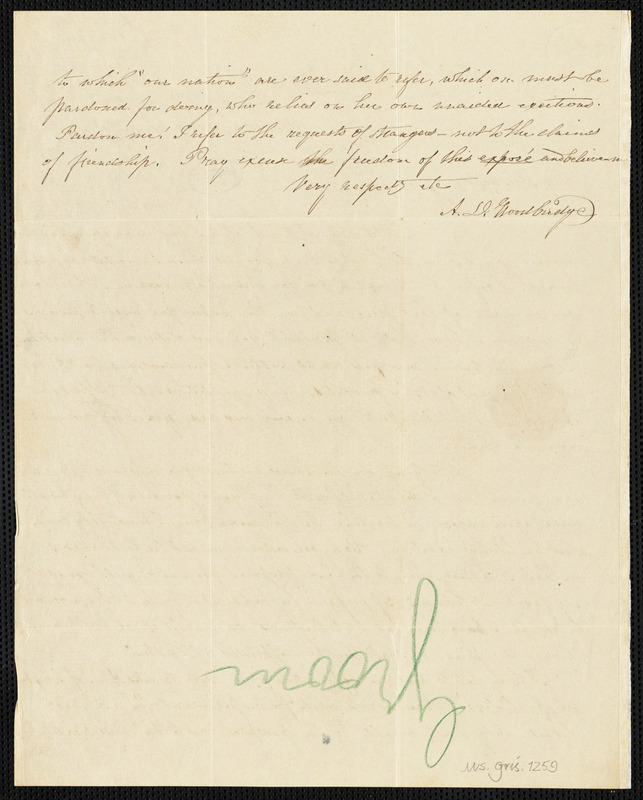 to which "our nation" are ever said to refer, which one must be
pardoned for doing, who relies on her own unaided exertions.
Pardon me! I refer to the requests of strangers – not to the claims
of friendship. Pray excuse the freedom of this exposé and believe m
Very respect'y etc
A. D. Woodbridge
Ms. Gris. 1259